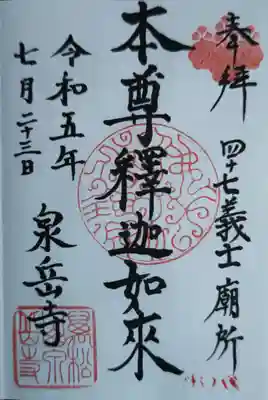 奉拝
四十七義士廟所
本尊釋迦如來
令和五年
七月二十三日
泉岳寺